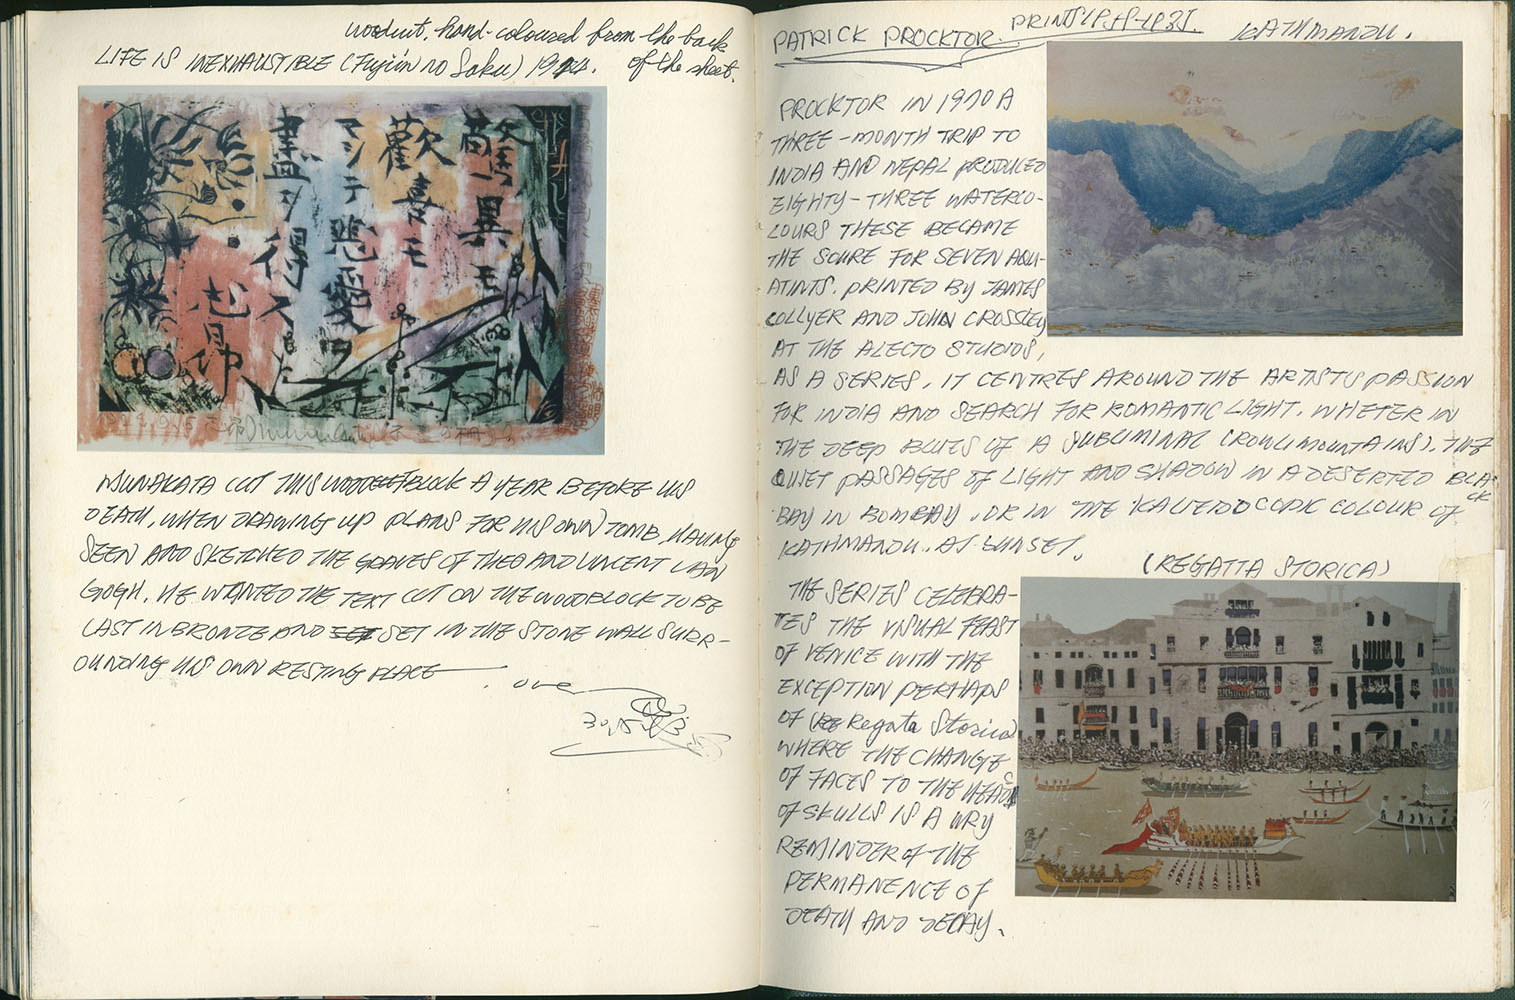 woodcut. hand-coloured from the back
LIFE IS INEXHAUSTIBLE (Fujin no Saku) 1974. of the sheet.
驚異モ
歓喜モ
マシテ悲愛ヲ
盡シ得ス
MUNAKATA CUT THIS WOODBLOCK A YEAR BEFORE HIS
DEATH, WHEN DRAWING UP PLANS FOR HIS OWN TOMB. HAVING
SEEN AND SKETCHED THE GRAVES OF THEO AND VINCENT VAN
GOGH. HE WANTED THE TEXT CUT ON THE WOODBLOCK TO BE
CAST IN BRONZE AND SET IN THE STONE WALL SURR-
OUNDING HIS OWN RESTING PLACE
. over
PATRICK PROCKTOR. PRINTS
KATHMANDU.
PROCKTOR IN 1970 A
THREE-MONTH TRIP TO
INDIA AND NEPAL PRODUCED
EIGHTY-THREE WATERCO-
LOURS THESE BECAME
THE SOURE FOR SEVEN AQU-
ATINTS. PRINTED BY JAMES
COLLYER AND JOHN CROSSLEY
AT THE ALECTO STUDIOS,
AS A SERIES, IT CENTRES AROUND THE ARTISTS PASSION
FOR INDIA AND SEARCH FOR ROMANTIC LIGHT. WHETER IN
THE DEEP BLUES OF A SUBLIMINAL MOUNTAINS). THE
QUIET PASSAGES OF LIGHT AND SHADOW IN A DESERTED BLACK
BAY IN BOMBAY, OR IN THE COLOUR OF
KATHMANDU.. AT SUNSET.
(REGATTA STORICA)
THE SERIES CELEBRA-
TES THE VISUAL FEAST
OF VENICE WITH THE
EXCEPTION PERHAPS
OF (Regata Storica)
WHERE THE CHANGE
OF FACES TO THE HEADS
OF SKULLS IS A WRY
REMINDER OF THE
PERMANENCE OF
DEATH AND DECAY.